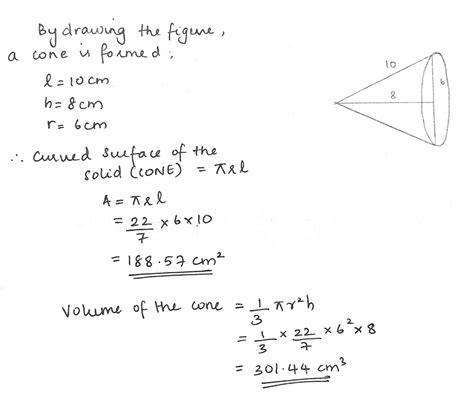 By drawing the figure,
a cone is formed:
l = 10cm
h = 8cm
r = 6cm
10
8
6
∴ curved surface of the
solid (CONE) = πrl
A = πrl
= 22/7 × 6 × 10
= 188.57 cm²
Volume of the cone = 1/3 πr²h
= 1/3 × 22/7 × 6² × 8
= 301.44 cm³